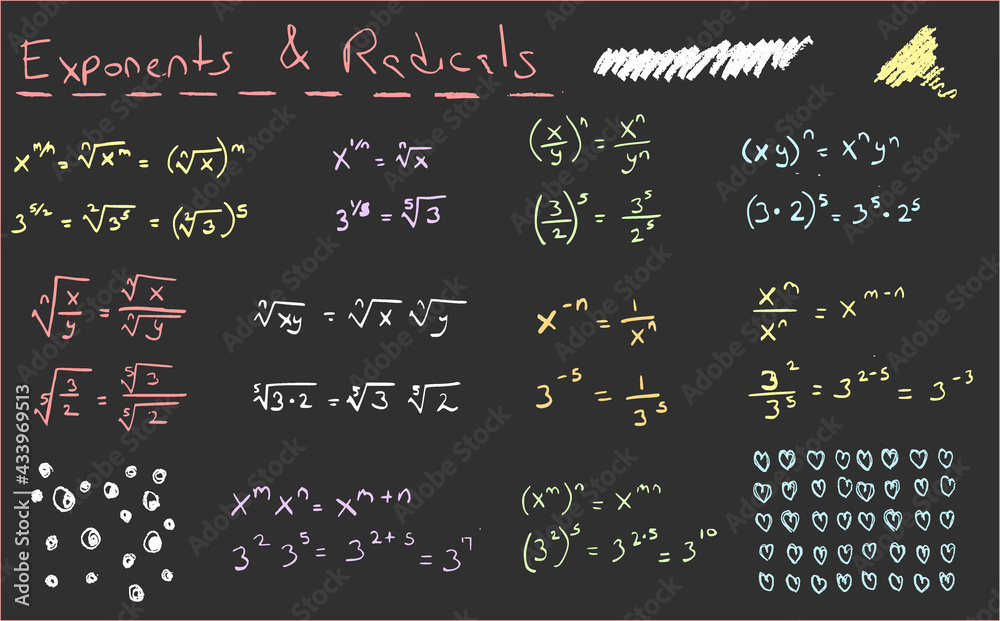 Exponents & Radicals
x^{m/n} = \sqrt[n]{x^m} = (\sqrt[n]{x})^m
3^{5/2} = \sqrt[2]{3^5} = (\sqrt[2]{3})^5
x^{1/n} = \sqrt[n]{x}
3^{1/5} = \sqrt[5]{3}
(x/y)^n = x^n/y^n
(3/2)^5 = 3^5/2^5
(xy)^n = x^n y^n
(3·2)^5 = 3^5·2^5
\sqrt[n]{x/y} = \sqrt[n]{x}/\sqrt[n]{y}
\sqrt[5]{3/2} = \sqrt[5]{3}/\sqrt[5]{2}
\sqrt[n]{xy} = \sqrt[n]{x} \sqrt[n]{y}
\sqrt[5]{3·2} = \sqrt[5]{3} \sqrt[5]{2}
x^{-n} = 1/x^n
3^{-5} = 1/3^5
x^m/x^n = x^{m-n}
3^2/3^5 = 3^{2-5} = 3^{-3}
x^m x^n = x^{m+n}
3^2 3^5 = 3^{2+5} = 3^7
(x^m)^n = x^{mn}
(3^2)^5 = 3^{2·5} = 3^{10}
Adobe Stock | #433969513
Adobe Stock